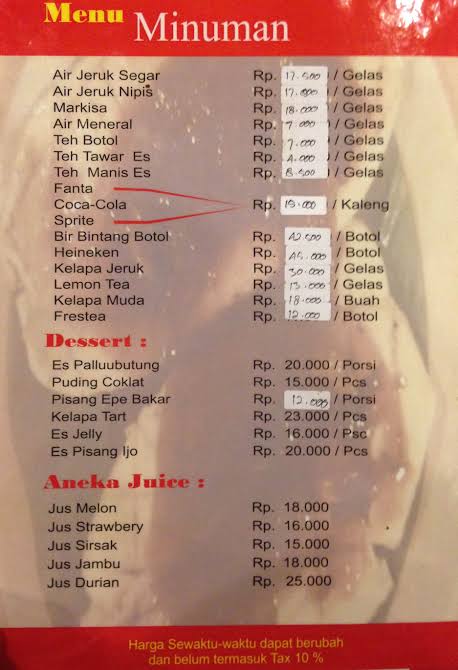 Menu Minuman
Air Jeruk Segar Rp. 17.500 / Gelas
Air Jeruk Nipis Rp. 17.000 / Gelas
Markisa Rp. 18.000 / Gelas
Air Meneral Rp. 7.000 / Gelas
Teh Botol Rp. 7.000 / Gelas
Teh Tawar Es Rp. 4.000 / Gelas
Teh Manis Es Rp. 8.500 / Gelas
Fanta
Coca-Cola Rp. 15.000 / Kaleng
Sprite
Bir Bintang Botol Rp. 42.500 / Botol
Heineken Rp. 45.000 / Botol
Kelapa Jeruk Rp. 30.000 / Gelas
Lemon Tea Rp. 13.000 / Gelas
Kelapa Muda Rp. 18.000 / Buah
Frestea Rp. 12.000 / Botol
Dessert :
Es Palluubutung Rp. 20.000 / Porsi
Puding Coklat Rp. 15.000 / Pcs
Pisang Epe Bakar Rp. 12.000 / Porsi
Kelapa Tart Rp. 23.000 / Pcs
Es Jelly Rp. 16.000 / Psc
Es Pisang Ijo Rp. 20.000 / Pcs
Aneka Juice :
Jus Melon Rp. 18.000
Jus Strawbery Rp. 16.000
Jus Sirsak Rp. 15.000
Jus Jambu Rp. 18.000
Jus Durian Rp. 25.000
Harga Sewaktu-waktu dapat berubah
dan belum termasuk Tax 10 %